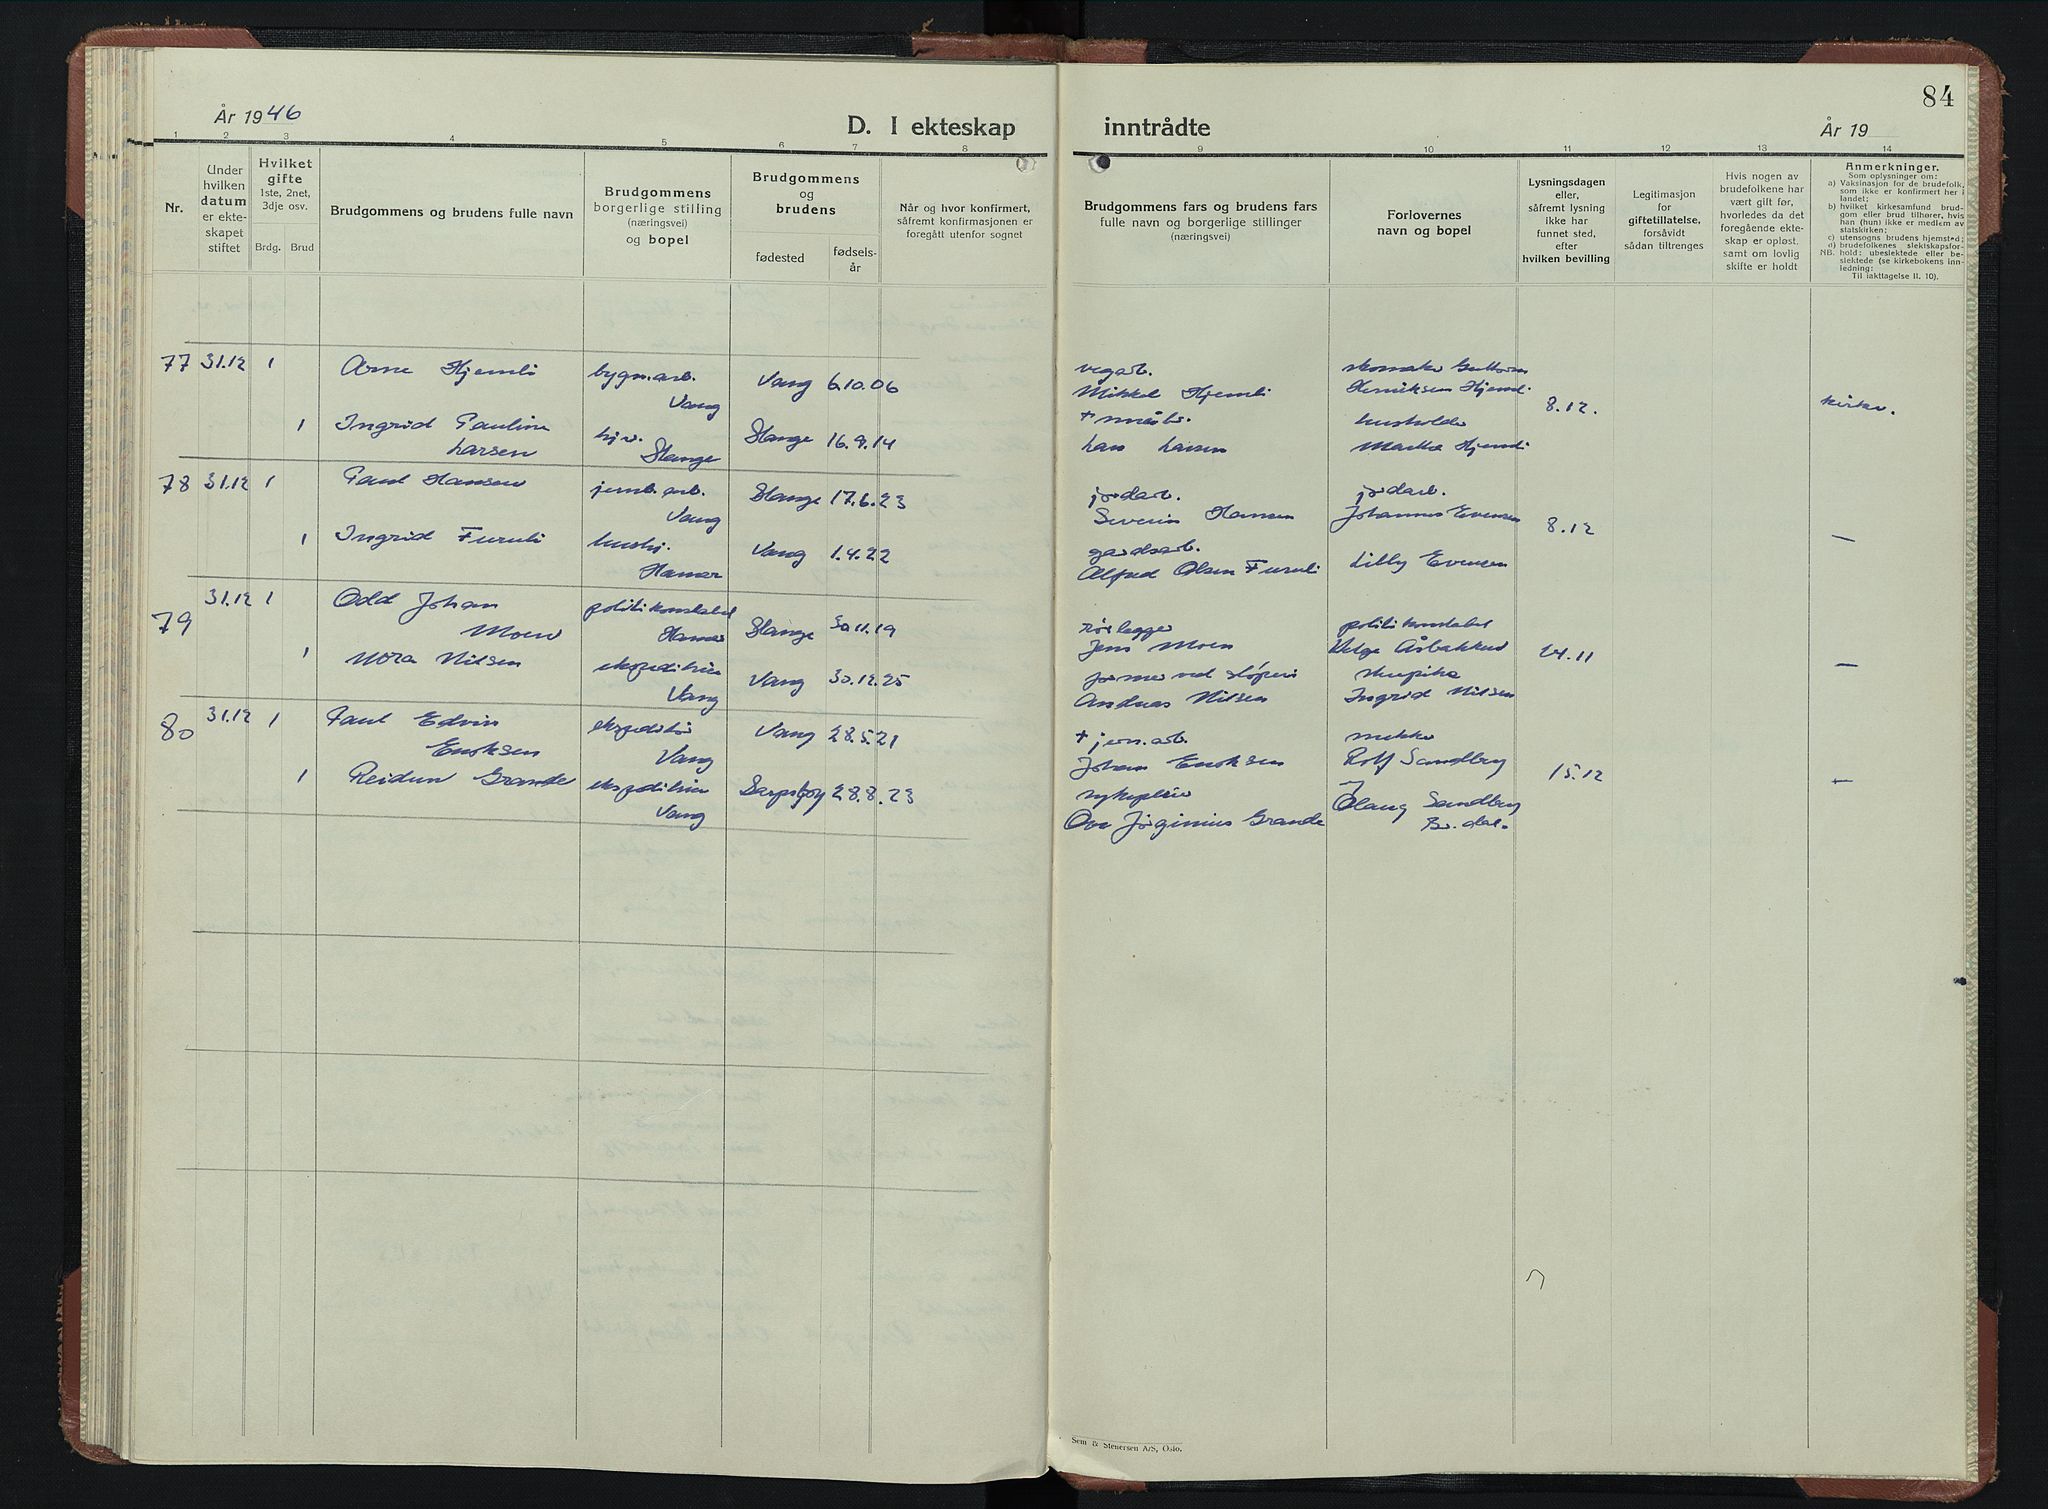 År 1946
D. I ekteskap
1 2 3 4 5 6 7 8
Nr.
Under hvilken datum er ekteskapet stiftet
Hvilket gifte
1ste, 2net, 3dje osv.
Brdg. Brud
Brudgommens og brudens fulle navn
Brudgommens borgerlige stilling (næringsvei) og bopel
Brudgommens og brudens
fødested
fødsels-år
Når og hvor konfirmert, såfremt konfirmasjonen er foregått utenfor sognet
77 31.12 1 Arne Hjemli bygn.arb. Vang Vang 6.10.06
1 Ingrid Pauline Larsen Stange Stange 16.9.14
78 31.12 1 Paul Hansen Vang Stange 17.6.23
1 Ingrid Furuli hushj. Hamar Vang 1.4.22
79 31.12 1 Odd Johan Moen politikonstabel Hamar Stange 30.11.19
1 Nora Nilsen ekspeditrise Vang Vang 30.12.25
80 31.12 1 Paul Edvin Enoksen ekspeditør Vang Vang 28.5.21
1 Reidun Grande ekspeditrise Vang Sarpsborg 28.8.23
84
inntrådte
År 19
9 10 11 12 13 14
Brudgommens fars og brudens fars
fulle navn og borgerlige stillinger
(næringsvei)
Forlovernes
navn og bopel
Lysningsdagen
eller,
såfremt lysning
ikke har
funnet sted,
efter
hvilken bevilling
Legitimasjon
for
giftetillatelse,
forsåvidt
sådan tiltrenges
Hvis nogen av
brudefolkene har
vært gift før,
hvorledes da det
foregående ekte-
skap er opløst,
samt om lovlig
skifte er holdt
Anmerkninger.
Som oplysninger om:
a) Vaksinasjon for de brudefolk,
som ikke er konfirmert her i
landet;
b) hvilket kirkesamfund brud-
gom eller brud tilhører, hvis
han (hun) ikke er medlem av
statskirken;
c) utensogns brudens hjemsted;
d) brudefolkenes slektskapsfor-
NB. hold: ubeslektede eller be-
slektede (se kirkebokens inn-
ledning:
Til iakttagelse II. 10).
vegarb.
Mikkel Hjemli
skomaker Guttorm
Henriksen Hjemli
8.12.
kirke.
+ småbr.
Lars Larsen
husholder
Martha Hjemli
jordarb.
Severin Hansen
jordarb.
Johannes Evensen
8.12
—
gardsarb.
Alfred Olsen Furuli
Lilly Evensen
rørlegger
Jens Moen
politikonstabel
Helge Åsbakken
24.11
—
Andreas Nilsen
Ingrid Nilsen
+ jern.arb.
Johan Enoksen
Rolf Sandberg
15.12
—
sykepleier
Ove Jørginius Grande
Olaug Sandberg
Br.dal.
Sem & Stenersen A/S, Oslo.